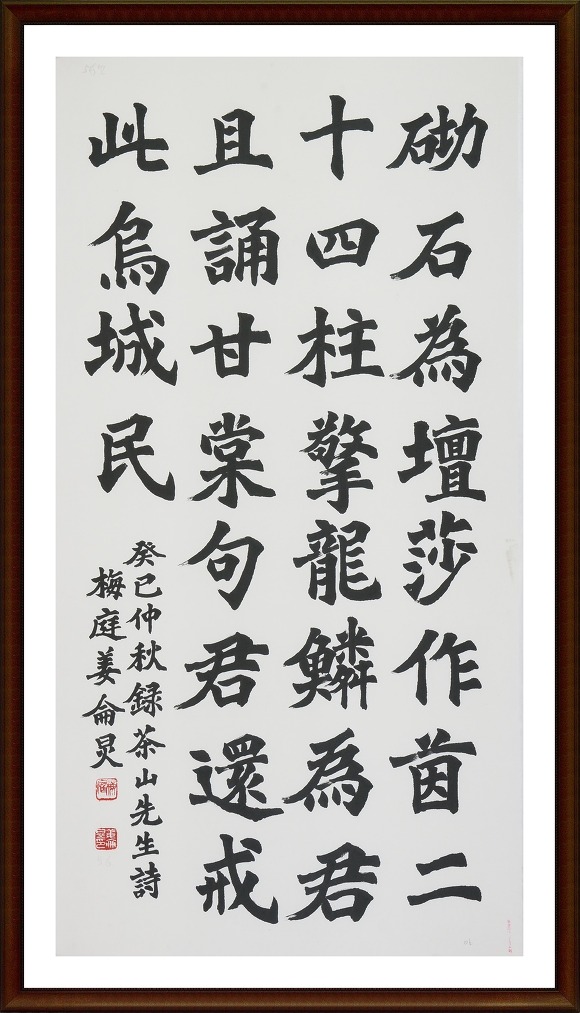 砌石為壇莎作茵二
十四柱擎龍鱗為君
且誦甘棠句君還戒
此烏城民
癸巳仲秋録茶山先生詩
梅庭姜侖炅